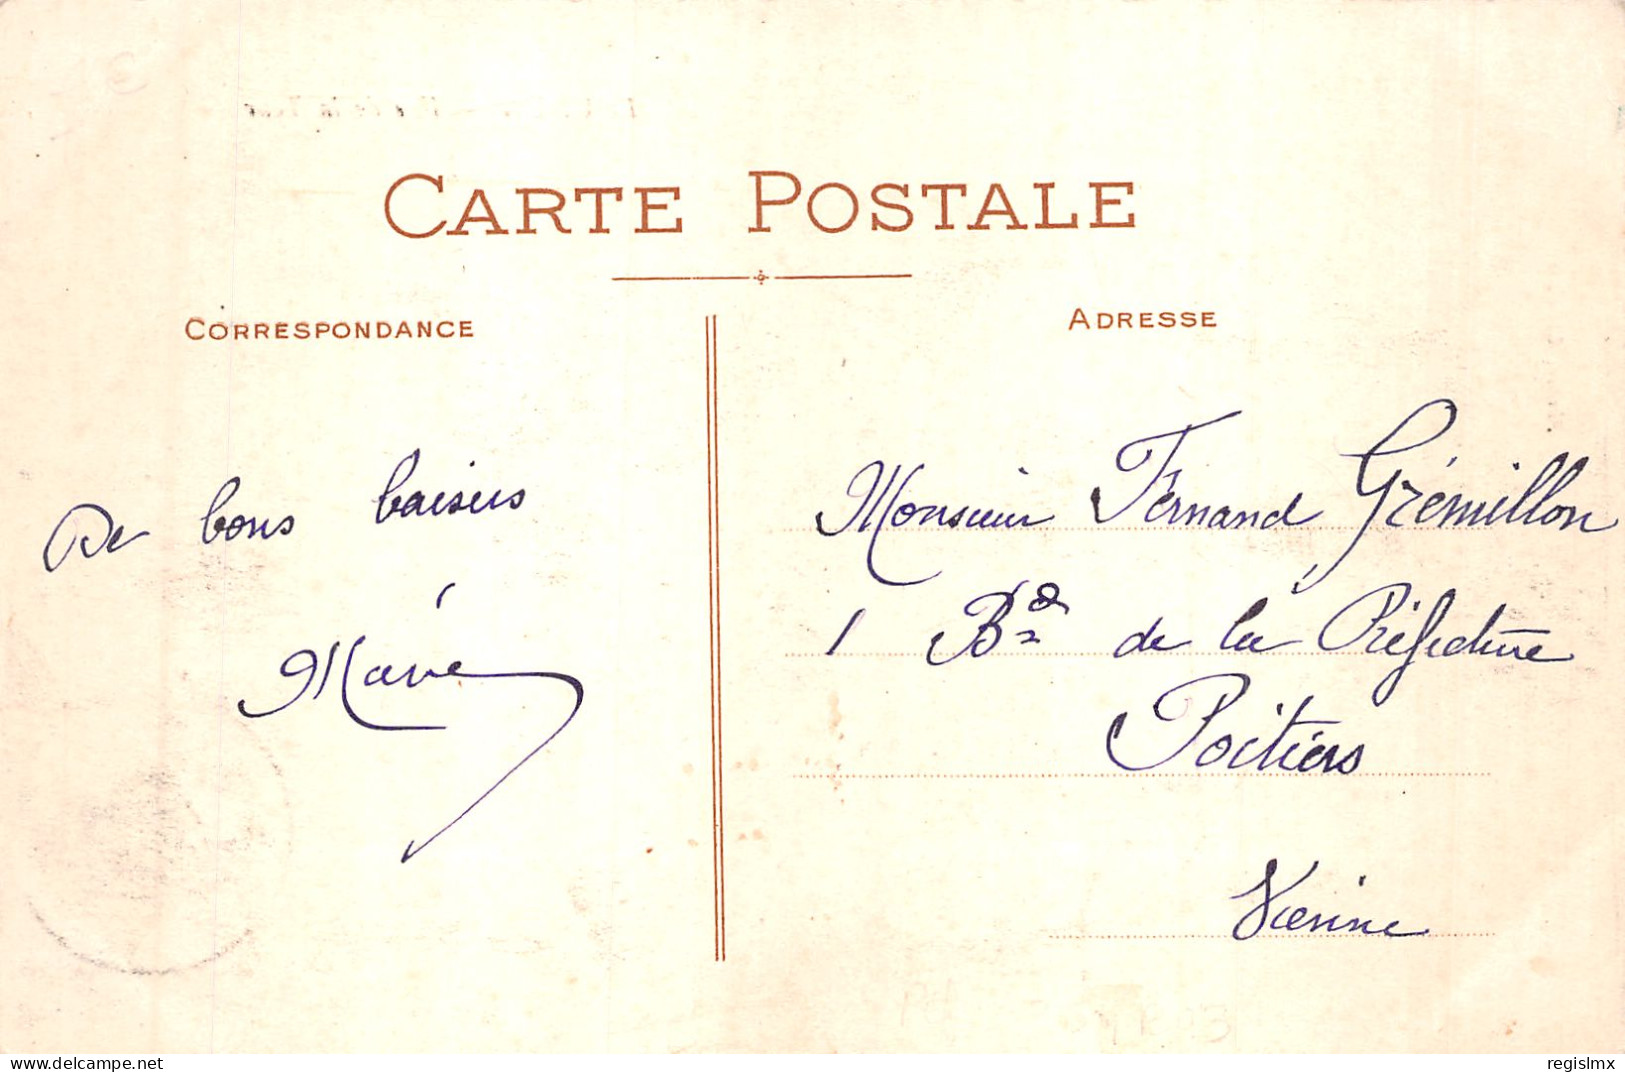 CARTE POSTALE
CORRESPONDANCE
ADRESSE
De bons baisers
Marie
Monsieur Fernand Grémillon
1 Bd de la Préfecture
Poitiers
Vienne
https://www.delcampe.net
regislmx